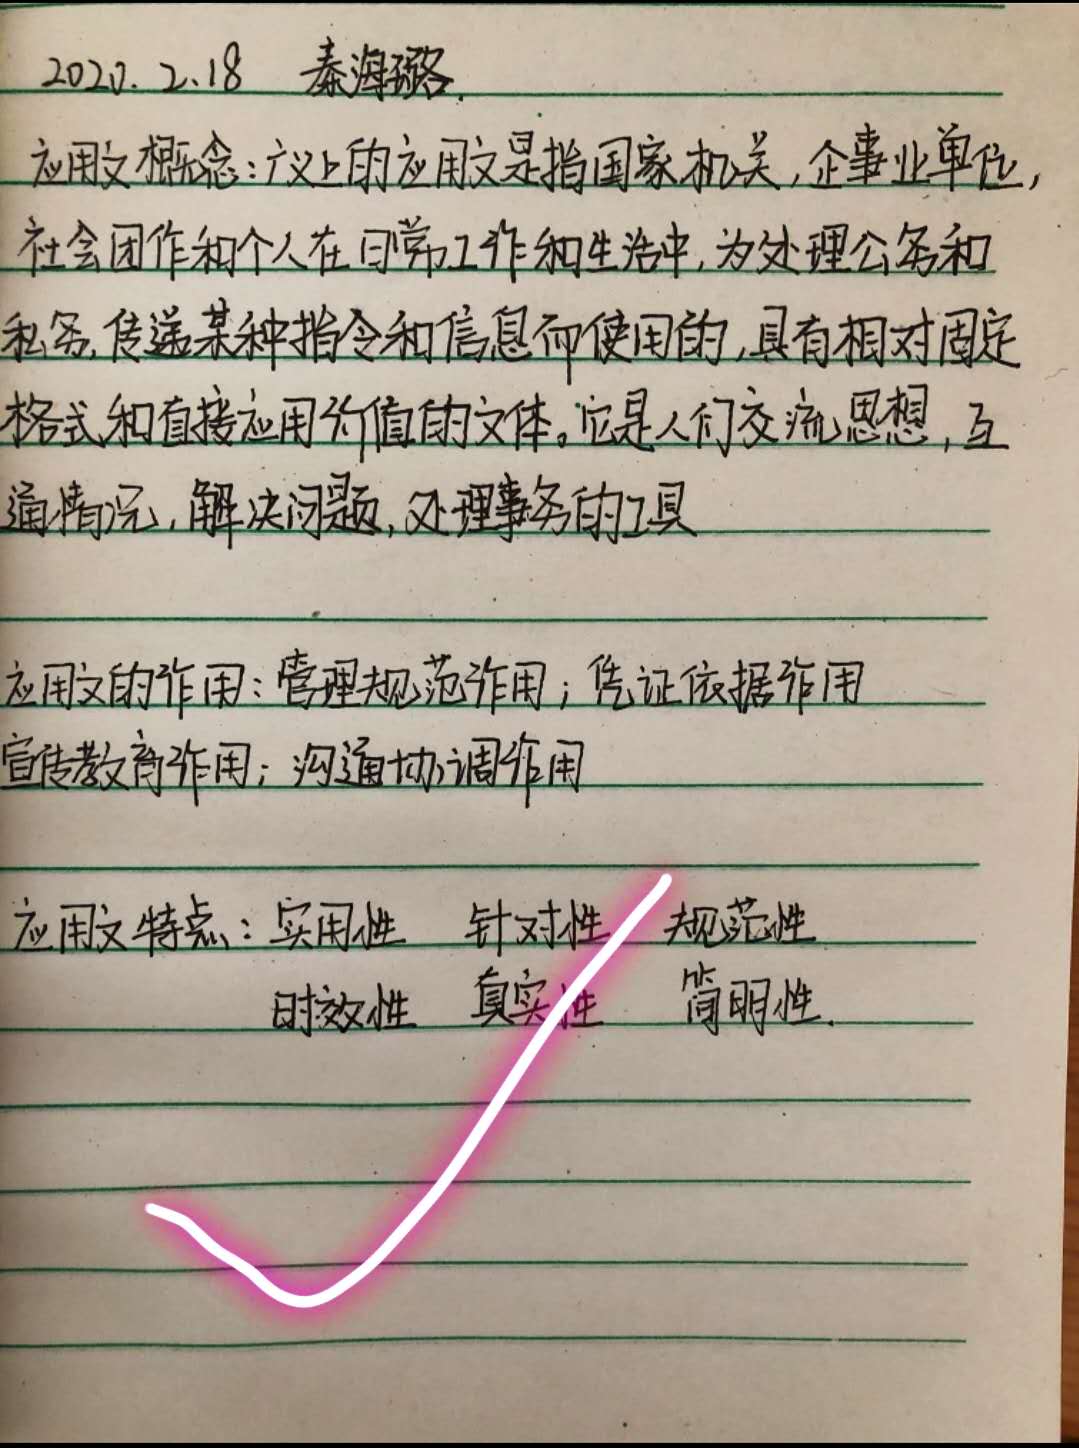 2020.2.18 秦海璐.
应用文概念:广义上的应用文是指国家机关,企事业单位,
社会团作和个人在日常工作和生活中,为处理公务和
私务,传递某种指令和信息而使用的,具有相对固定
格式和直接应用价值的文体。它是人们交流思想,互
通情况,解决问题,处理事务的工具
应用文的作用:管理规范作用;凭证依据作用
宣传教育作用;沟通协调作用
应用文特点:实用性 针对性 规范性
时效性 真实性 简明性.